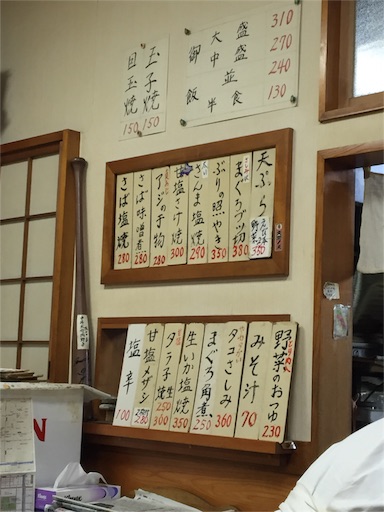 御飯
大盛 310
中盛 270
並 240
半食 130
玉子焼 150
目玉焼 150
天ぷら 350
まぐろブツ切 380
ぶりの照やき 350
さんま塩焼 290
甘塩さけ焼 300
アジの干物 280
さば味噌煮 280
さば塩焼 280
野菜のおつゆ 230
みそ汁 70
タコさしみ 360
まぐろ角煮 250
生いか塩焼 350
タラ子 生250 焼300
甘塩メザシ 280
塩辛 100
N